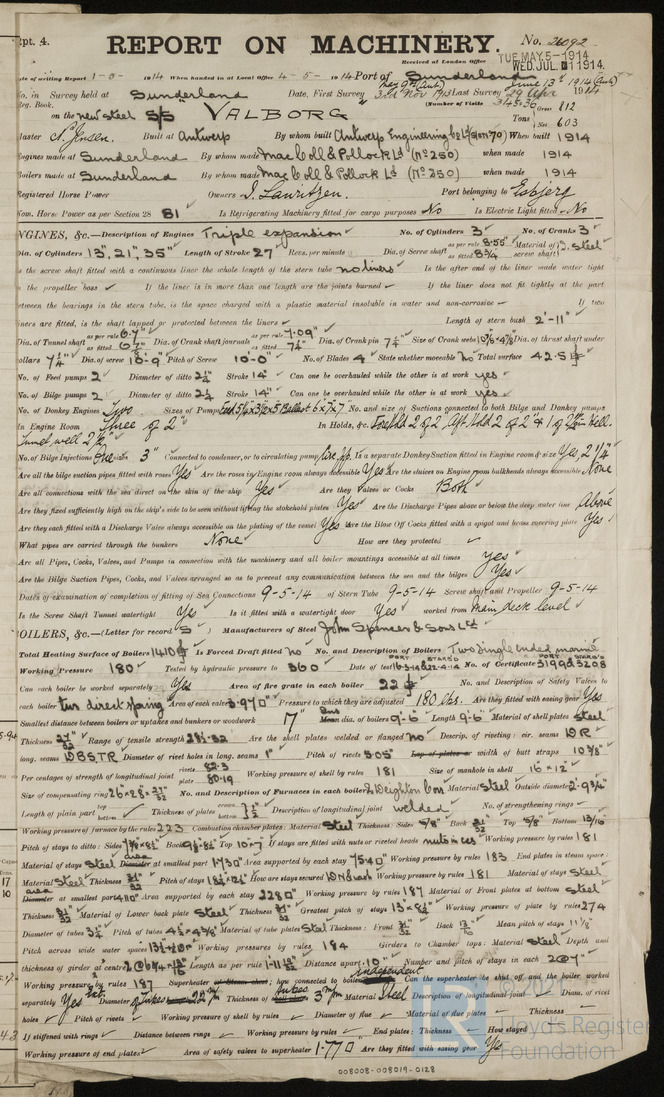 Rpt. 4.
REPORT ON MACHINERY. No. 26092
Received at London Office TUE. MAY. 5-1914
WED. JUL. 1914.
Date of writing Report 1-5- 1914 When handed in at Local Office 4-5- 1914 Port of Sunderland
No. in Survey held at Sunderland Date, First Survey 3rd Nov 1913 Last Survey 29 Apr 1914
Reg. Book. (Number of Visits
on the new steel S/S VALBORG Tons Gross 1112 Net 603
Master N. Jensen. Built at Antwerp By whom built Antwerp Engineering Co Ld When built 1914
Engines made at Sunderland By whom made Mac Coll & Pollock Ld (No 250) when made 1914
Boilers made at Sunderland By whom made Mac Coll & Pollock Ld (No 250) when made 1914
Registered Horse Power Owners D. Lauritzen. Port belonging to Esbjerg
Nom. Horse Power as per Section 28 81 Is Refrigerating Machinery fitted for cargo purposes No Is Electric Light fitted No
ENGINES, &c.—Description of Engines Triple expansion No. of Cylinders 3 No. of Cranks 3
Dia. of Cylinders 13", 21", 35" Length of Stroke 27" Revs. per minute Dia. of Screw shaft as per rule 8.55" as fitted 8 3/4 Material of screw shaft steel
Is the screw shaft fitted with a continuous liner the whole length of the stern tube no liners Is the after end of the liner made water tight
in the propeller boss If the liner is in more than one length are the joints burned If the liner does not fit tightly at the part
between the bearings in the stern tube, is the space charged with a plastic material insoluble in water and non-corrosive If two
liners are fitted, is the shaft lapped or protected between the liners Length of stern bush 2'-11"
Dia. of Tunnel shaft as per rule 6.7" as fitted Dia. of Crank shaft journals as per rule 7.09" as fitted 7 1/4" Dia. of Crank pin 7 1/4" Size of Crank webs Dia. of thrust shaft under
collars 7 1/4" Dia. of screw 10'-9" Pitch of Screw 10'-0" No. of Blades 4 State whether moveable No Total surface 42.5
No. of Feed pumps 2 Diameter of ditto 2 1/4" Stroke 14" Can one be overhauled while the other is at work yes
No. of Bilge pumps 2 Diameter of ditto 2 1/4" Stroke 14" Can one be overhauled while the other is at work yes
No. of Donkey Engines Two Sizes of Pumps Feed 5 1/2 x 3 1/2 x 5 Ballast 6 x 7 x 7 No. and size of Suctions connected to both Bilge and Donkey pumps
In Engine Room Three of 2" In Holds, &c. Fore Hold 2 of 2" Aft Hold 2 of 2" & 1 of
Tunnel well 2 1/2"
No. of Bilge Injections One sizes 3" Connected to condenser, or to circulating pump Circ. pp. Is a separate Donkey Suction fitted in Engine room & size Yes, 2 1/4"
Are all the bilge suction pipes fitted with roses Yes Are the roses in Engine room always accessible Yes Are the sluices on Engine room bulkheads always accessible None
Are all connections with the sea direct on the skin of the ship Yes Are they Valves or Cocks Both
Are they fixed sufficiently high on the ship's side to be seen without lifting the stokehold plates Yes Are the Discharge Pipes above or below the deep water line Above
Are they each fitted with a Discharge Valve always accessible on the plating of the vessel Yes Are the Blow Off Cocks fitted with a spigot and brass covering plate Yes
What pipes are carried through the bunkers None How are they protected
Are all Pipes, Cocks, Valves, and Pumps in connection with the machinery and all boiler mountings accessible at all times yes
Are the Bilge Suction Pipes, Cocks, and Valves arranged so as to prevent any communication between the sea and the bilges Yes
Dates of examination of completion of fitting of Sea Connections 9-5-14 of Stern Tube 9-5-14 Screw shaft and Propeller 9-5-14
Is the Screw Shaft Tunnel watertight Yes Is it fitted with a watertight door Yes worked from Main deck level
BOILERS, &c.—(Letter for record S) Manufacturers of Steel John Spencer & Sons Ld
Total Heating Surface of Boilers 1410 Is Forced Draft fitted No No. and Description of Boilers Two single ended marine
Working Pressure 180 Tested by hydraulic pressure to 360 Date of test PORT 16-3-14 STARB'D 22-4-14 No. of Certificate PORT 3199 STARB'D 3208
Can each boiler be worked separately Yes Area of fire grate in each boiler 22 No. and Description of Safety Valves to
each boiler two direct spring Area of each valve 3.97 Pressure to which they are adjusted 180 lbs. Are they fitted with easing gear Yes
Smallest distance between boilers or uptakes and bunkers or woodwork 7" dia. of boilers 9-6 Length 9-6" Material of shell plates steel
Thickness 27/32 Range of tensile strength 28 1/2-32 Are the shell plates welded or flanged no Descrip. of riveting: cir. seams D R
long. seams DBS.TR Diameter of rivet holes in long. seams 1" Pitch of rivets 5.05" Lap of plates or width of butt straps 10 3/8"
Per centages of strength of longitudinal joint rivets 82.3 plate 80.19 Working pressure of shell by rules 181 Size of manhole in shell 16" x 12"
Size of compensating ring No. and Description of Furnaces in each boiler 2 Deighton Corr Material Steel Outside diameter 2'-9 3/4"
Length of plain part top bottom Thickness of plates crown bottom Description of longitudinal joint welded No. of strengthening rings
Working pressure of furnace by the rules 223 Combustion chamber plates: Material Steel Thickness: Sides 5/8" Back Top 5/8" Bottom 13/16
Pitch of stays to ditto: Sides Back Top If stays are fitted with nuts or riveted heads nuts in ccs Working pressure by rules 181
Material of stays Steel area at smallest part 1.73 Area supported by each stay 75.40 Working pressure by rules 183 End plates in steam space:
Material Steel Thickness Pitch of stays How are stays secured DN & wash Working pressure by rules 181 Material of stays Steel
area at smallest part Area supported by each stay 228 Working pressure by rules 187 Material of Front plates at bottom Steel
Thickness Material of Lower back plate Steel Thickness Greatest pitch of stays Working pressure of plate by rules 274
Diameter of tubes 3 1/4" Pitch of tubes Material of tube plates Steel Thickness: Front Back Mean pitch of stays
Pitch across wide water spaces Working pressures by rules 184 Girders to Chamber tops: Material Steel Depth and
thickness of girder at centre Length as per rule Distance apart 10" Number and pitch of stays in each 2 @ 7"
Working pressure by rules 187 Superheater or Steam chest; how connected to boiler Independent Can the superheater be shut off and the boiler worked
separately Yes Diameter of Tubes Thickness of Material Steel Description of longitudinal joint Diam. of rivet
holes Pitch of rivets Working pressure of shell by rules Diameter of flue Material of flue plates Thickness
If stiffened with rings Distance between rings Working pressure by rules End plates: Thickness How stayed
Working pressure of end plates Area of safety valves to superheater 1.77 Are they fitted with easing gear Yes
LR
Lloyd's Register
Foundation
008008-008019-0128